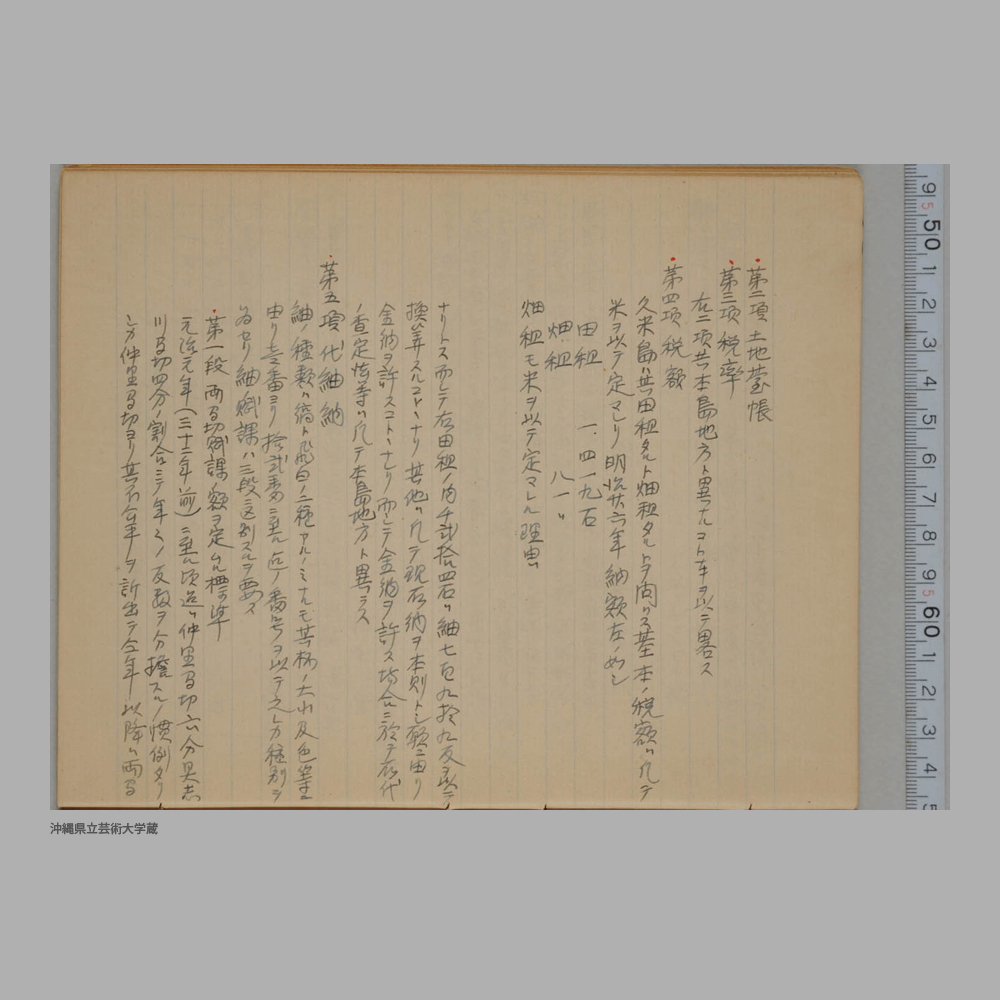 第二項 土地䑓帳
第三項 税率
右二項共本島地方ト異ナルコトナキヲ以テ畧ス
第四項 税額
久米島ハ其田租タルト畑租タルトヲ問ハス基本ノ税額ハ凡テ
米ヲ以テ定マレリ明治廿六年納額左ノ如シ
田租 一、四一九石
畑租 八一〃
畑租モ米ヲ以テ定マレル理由ハ
ナリトス而シテ右田租ノ内千弐拾四石ハ紬七百九拾九反ヲ以テ
換算スルコトヽナリ其他ハ凡テ現石納ヲ本則トシ願ニ由リ
金納ヲ許スコトヽナレリ而シテ金納ヲ許ス場合ニ於テ石代
ノ査定法等ハ凡テ本島地方ト異ナラス
第五項 代紬納
紬ノ種類ハ縞ト飛白ノ二種アルノミナルモ其柄ノ大小及色等ニ
由リ壱番ヨリ拾弐番ニ至ル迄ノ番号ヲ以テ之レカ種別ヲ
為セリ紬賦課ハ三段ニ区別スルヲ要ス
第一段 両間切賦課額ヲ定ムル標準
元治元年(三十二年前)ニ至ル頃迄ハ仲里間切六分具志
川間切四分ノ割合ニテ年々ノ反数ヲ分擔スルノ慣例タリ
シカ仲里間切ヨリ其不公平ヲ訴出テ仝年以降ハ両間
9 50 1 2 3 4 5 6 7 8 9 60 1 2 3 4 5
沖縄県立芸術大学蔵